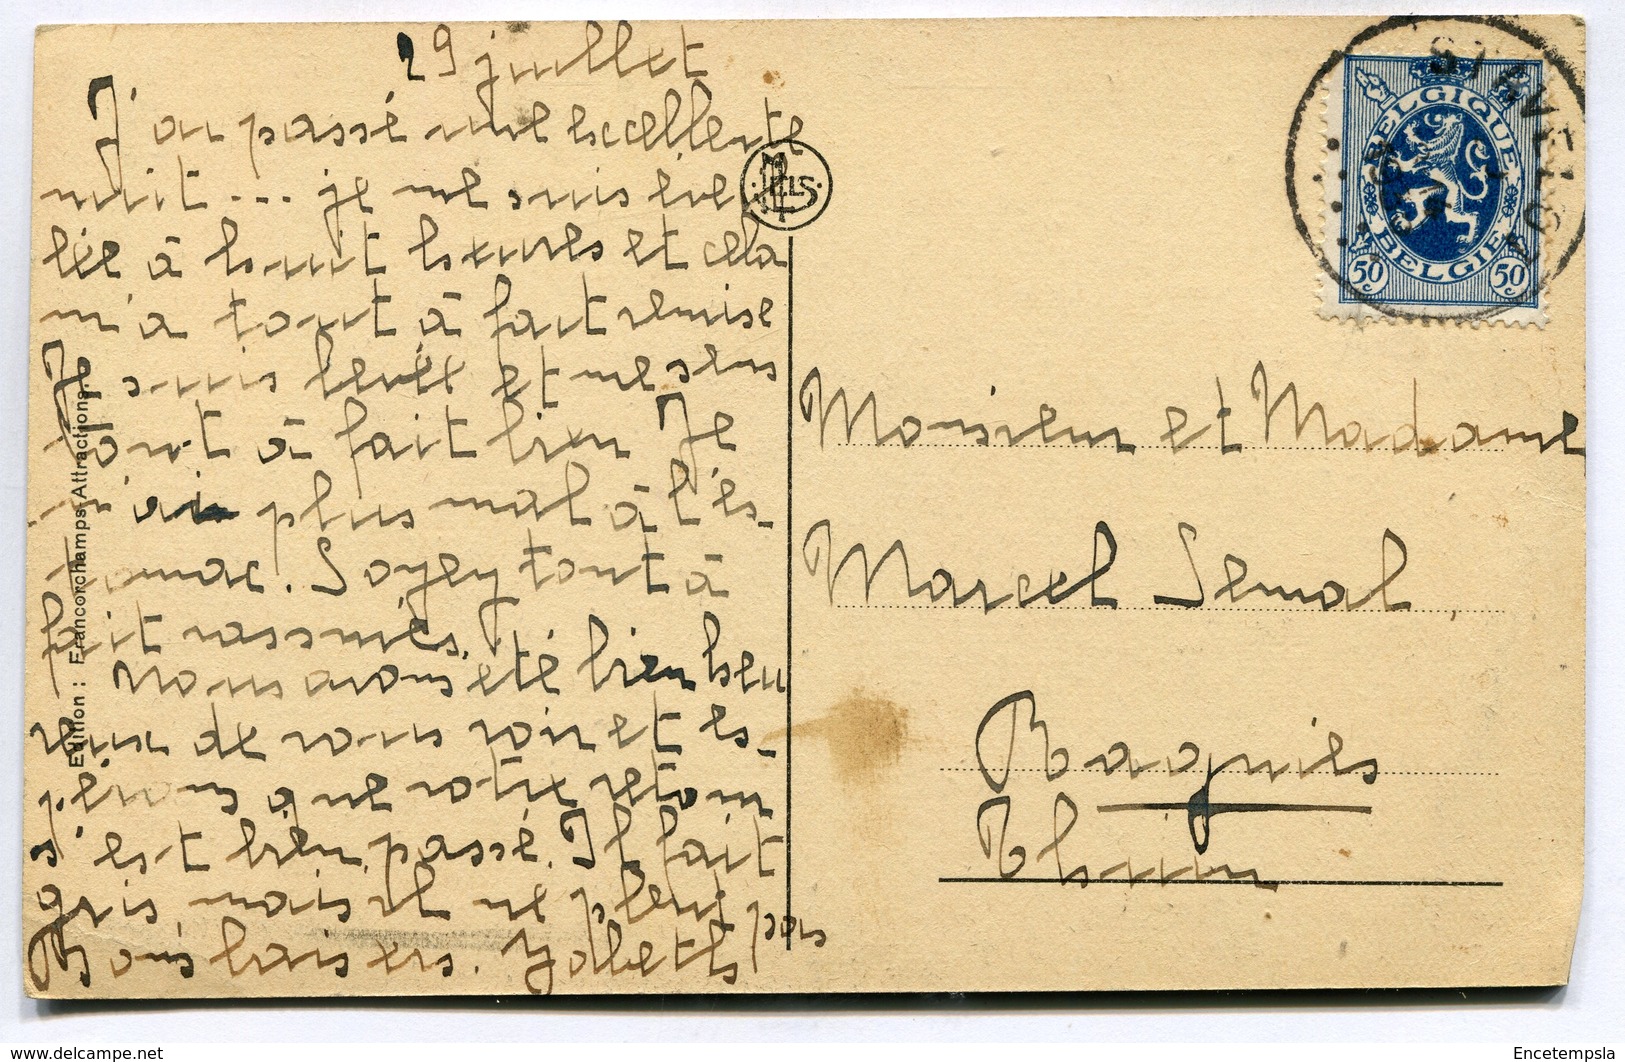 29 juillet
J'ai passé une excellente
nuit ... je me suis réveil
lée à huit heures et cela
m'a tout à fait remise
Je suis levée et me sens
tout à fait bien Je
n'ai plus mal à l'es-
tomac. Soyez tout à
fait rassurés.
Nous avons été bien heu
reux de vous voir et es-
pérons que votre retour
s'est bien passé. Il fait
gris mais il ne pleut pas
Bons baisers.
Edition : Francorchamps-Attractions.
NELS
STAVELOT
BELGIQUE
BELGIE
50c 50c
Monsieur et Madame
Marcel Semal,
Ragnies
Thuin
www.delcampe.net
Encetempsla